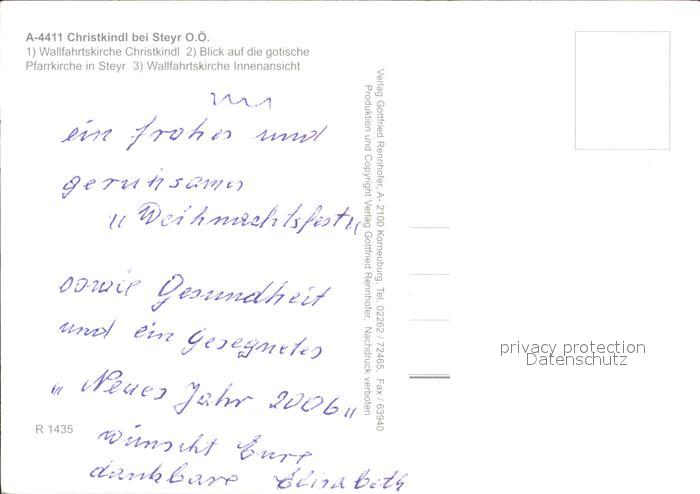 A-4411 Christkindl bei Steyr O.Ö.
1) Wallfahrtskirche Christkindl 2) Blick auf die gotische
Pfarrkirche in Steyr 3) Wallfahrtskirche Innenansicht
ein frohes und
geruhsames
„Weihnachtsfest“
sowie Gesundheit
und ein gesegnetes
„Neues Jahr 2006“
wünscht Eure
dankbare Elisabeth
R 1435
Verlag Gottfried Rennhofer, A- 2100 Korneuburg, Tel. 02262 / 72465, Fax / 63940
Produktion und Copyright Verlag Gottfried Rennhofer, Nachdruck verboten
privacy protection
Datenschutz